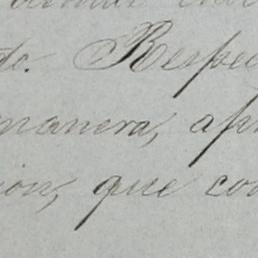 do. Respec
manera, apr
ion, que con